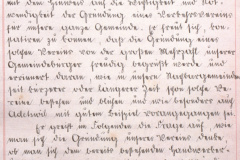 mit dem Hinweis auf die Wichtigkeit und Not-
wendigkeit der Gründung eines Verkehrsvereins
für unsere ganze Gemeinde. Er freut sich, kon-
statieren zu können, daß die Gründung eines
solchen Vereins von der großen Mehrzahl unserer
Gemeindebürger freudig begrüßt werde und
erinnert daran, wie in unsern Nachbargemeinden
seit kürzerer oder längerer Zeit schon solche Ve-
reine bestehen und blühen und wie besonders auch
Adelboden mit gutem Beispiel vorangegangen sei.
Er greift im Folgenden die Frage auf, wie
man sich die Gründung unseres Vereins denke,
ob man sich dem bereits bestehenden Handwerker-